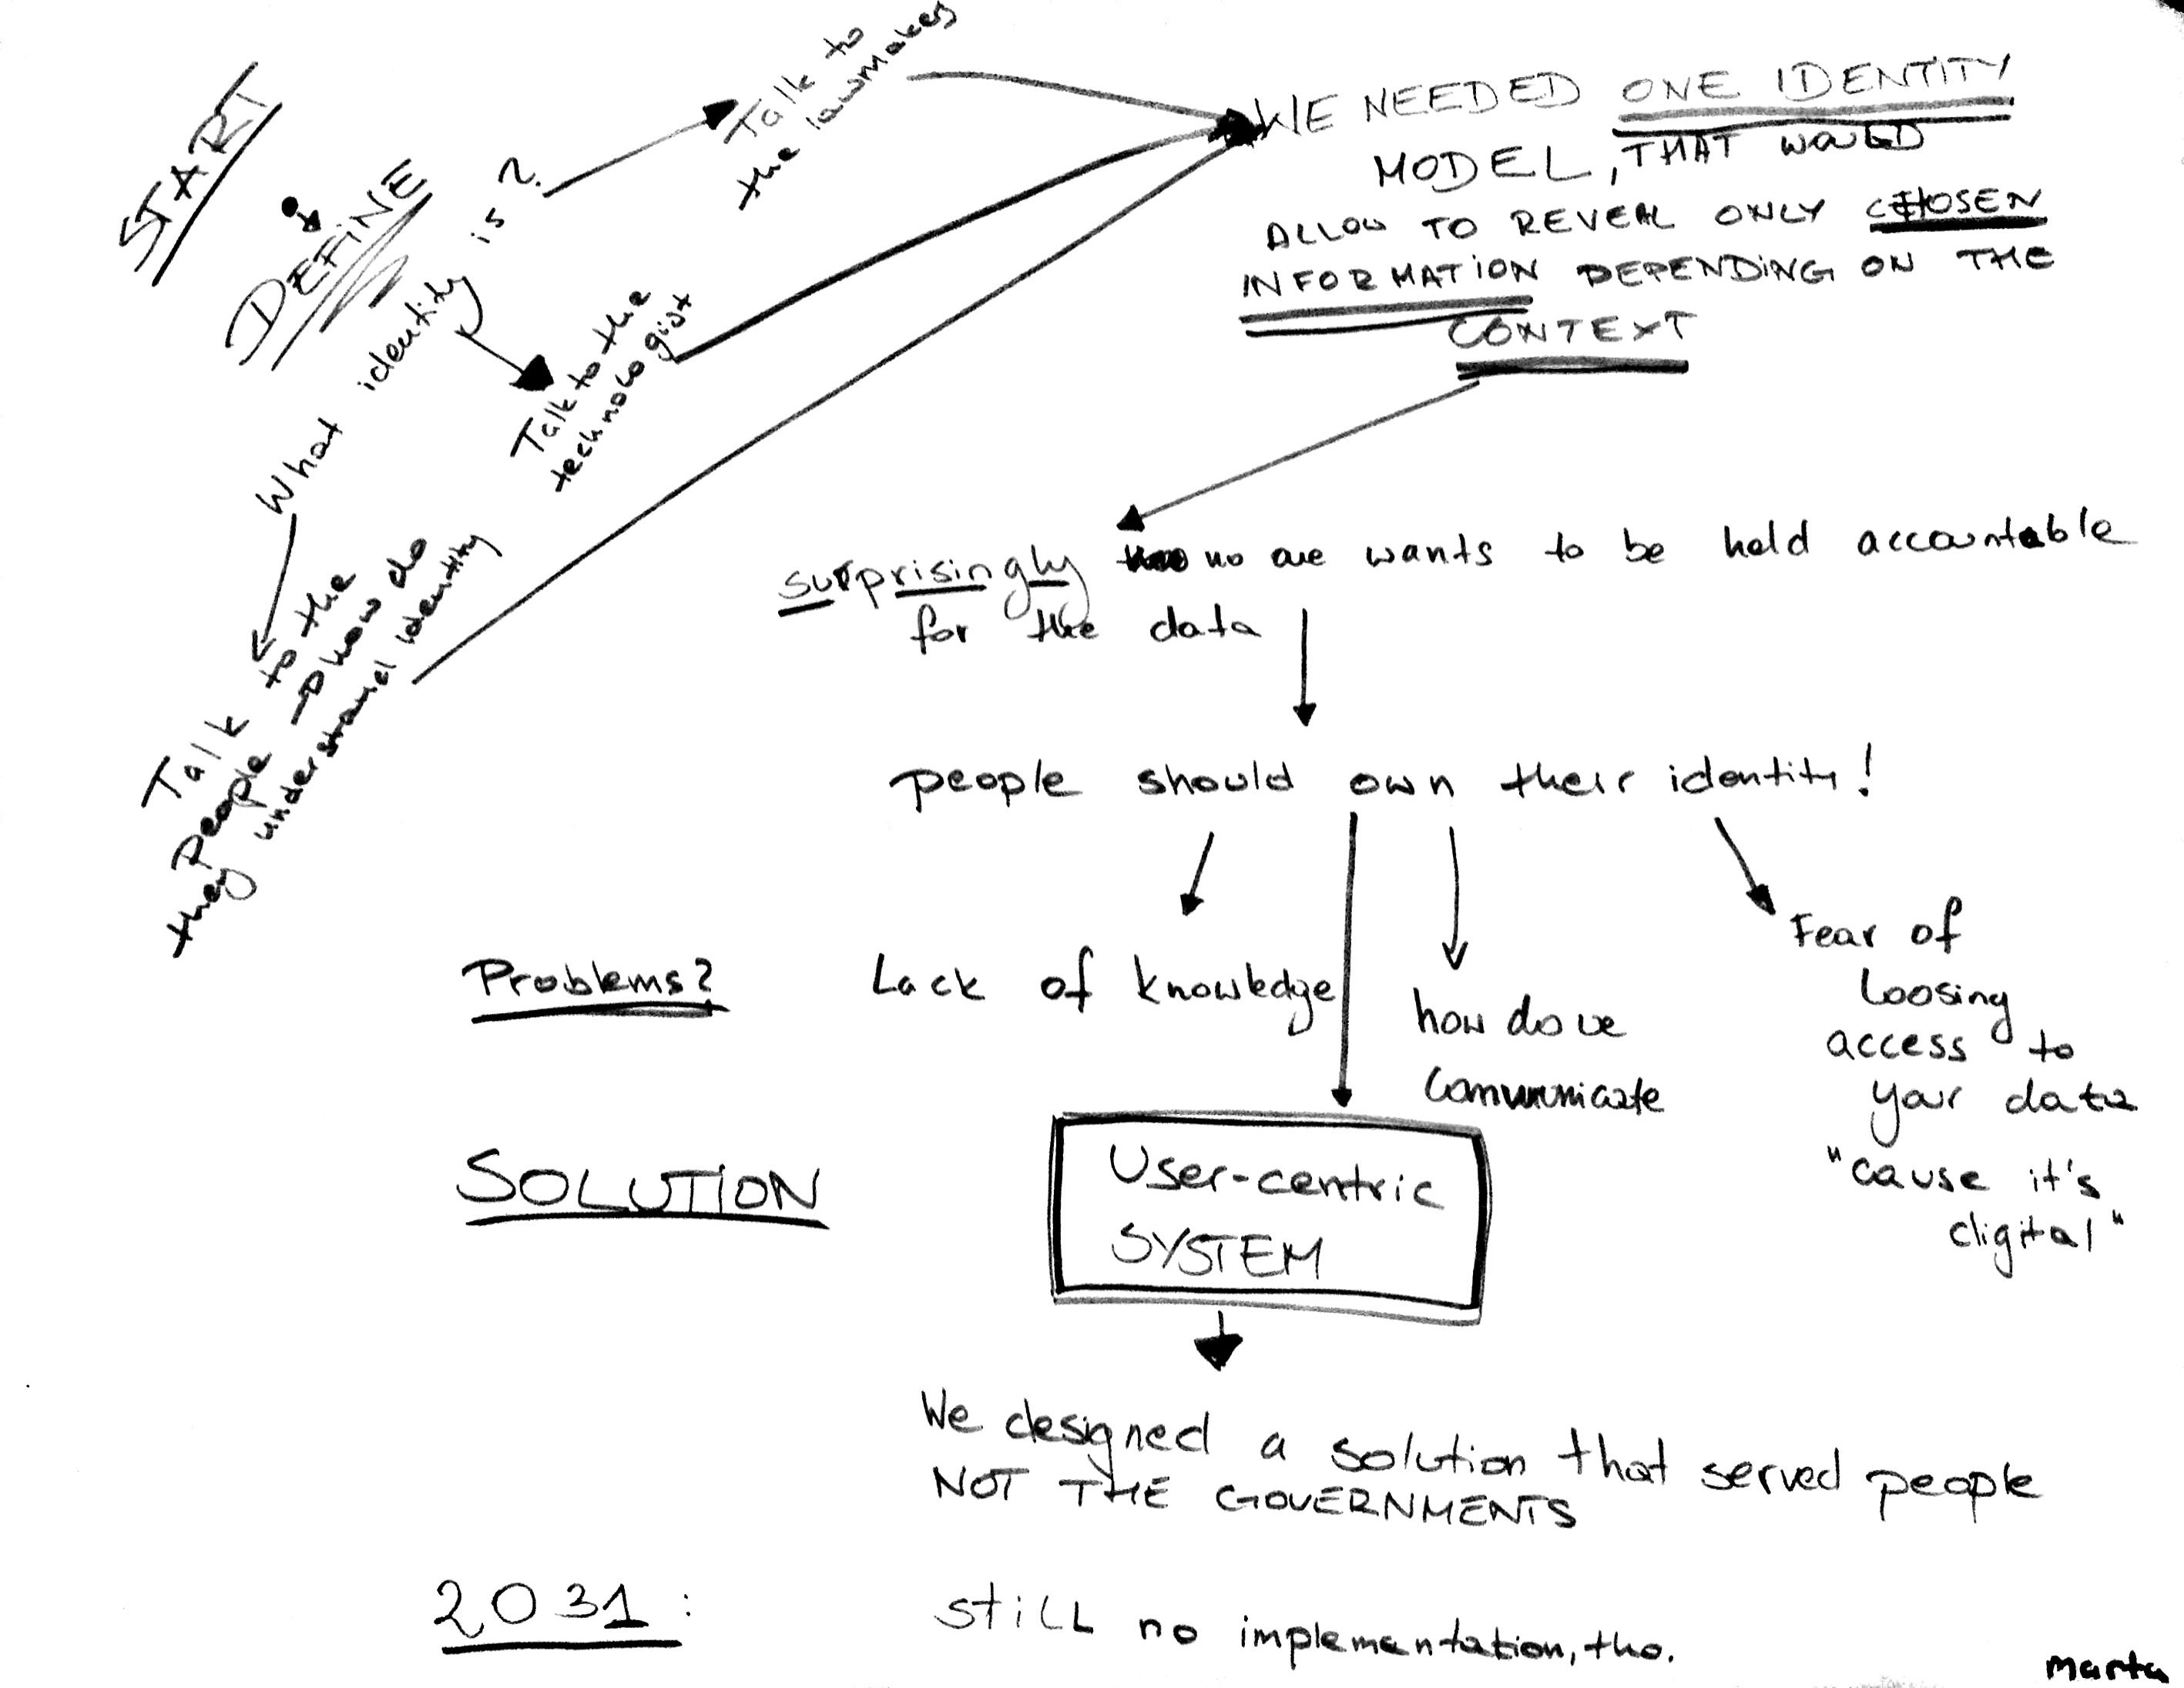 START
DEFINE
What identity is?
Talk to
the lawmakers
Talk to the
technologist
Talk to the
people → how do
they understand identity
WE NEEDED ONE IDENTITY
MODEL, THAT WOULD
ALLOW TO REVEAL ONLY CHOSEN
INFORMATION DEPENDING ON THE
CONTEXT
surprisingly no one wants to be held accountable
for the data
people should own their identity!
Problems?
Lack of knowledge
how do we
communicate
Fear of
loosing
access to
your data
"cause it's
digital"
SOLUTION
User-centric
SYSTEM
We designed a solution that served people
NOT THE GOVERNMENTS
2031:
still no implementation, tho.
marta